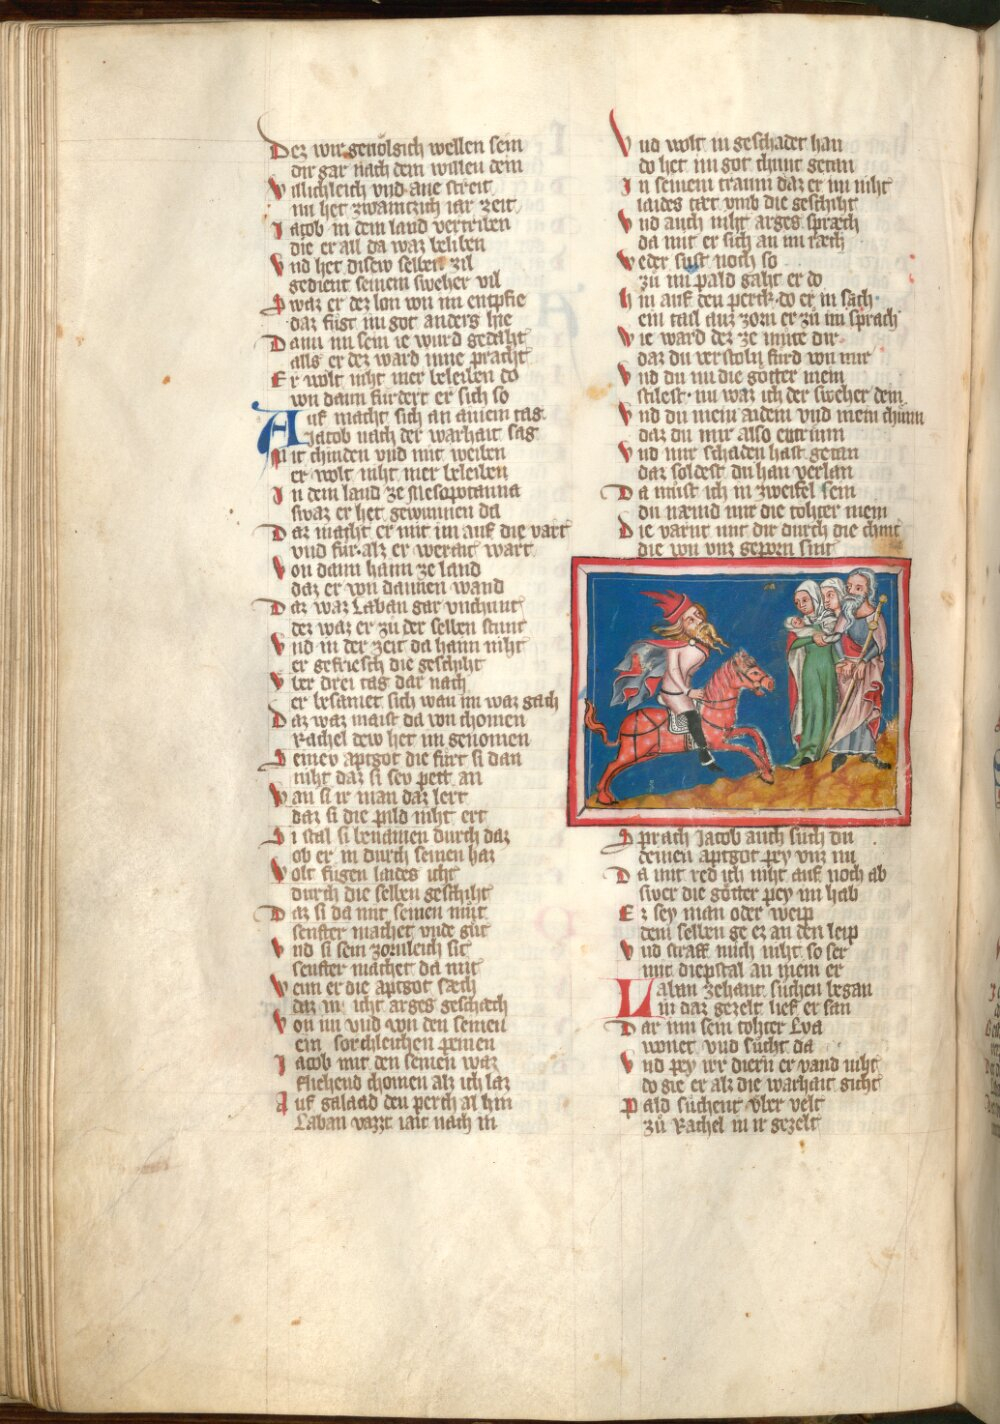 Dez wir genölgich wellen sein
dir gar nach dem willen dein
Willichleich vnd ane streit
nu het zwaintzich iar zeit
Jacob in dem land vertriben
die er all da waz beliben
Vnd het disew selben zil
gedient seinem sweher vil
Swaz er dez lon von im entpfie
daz fügt im got anders hie
Dann im sein ie wurd gedaht
alls er dez ward inne pracht
Er wolt niht mer beleiben do
von dann fürdert er sich so
Auf macht sich an ainem tag
Jacob nach der warhait sag
Mit chinden vnd mit weiben
er wolt niht mer beleiben
In dem land ze Mesopotania
swaz er het gewunnen da
Daz macht er mit im auf die vart
vnd für alz er werait wart
Von dann haim ze land
daz er von dannen wand
Daz waz Laban gar vnchunt
dez waz er zü der selben stunt
Vnd in der zeit da haim niht
er gefriesch die geschiht
Vber drei tag dar nach
er besamet sich wan im waz gach
Daz waz maist da von chomen
Rachel dew het im genomen
Seinev aptgot die fürt si dan
niht daz si sev pett an
Wan si ir man daz lert
daz si die pild niht ert
Si stal si benamen durch daz
ob er in durch seinen haz
Wolt fügen laides iht
durch die selben geschiht
Daz si da mit seinen müt
senfter machet vnde güt
Vnd si sein zornleich sit
senfter machet da mit
Wenn er die aptgot sæch
daz in iht arges geschæch
Von im vnd von den seinen
ein sorchleichen peinen
Jacob mit den seinen waz
fliehend chomen alz ich laz
Auf galaad den perch al hin
Laban vazzt iait nach in
Vnd wolt in geschadet han
do het im got chunt getan
In seinem traum daz er im niht
laides tæt vmb die geschiht
Vnd auch niht arges spræch
da mit er sich an im ræch
Weder sust noch so
zü im pald gaht er do
Hin auf den perch do er in sach
ein tail auz zorn er zü im sprach
Wie ward dez ze müte dir
daz du verstoln fürd von mir
Vnd du mi die götter mein
stilest nu waz ich der sweher dein
Vnd du mein aidem vnd mein chünn
daz du mir also entrinn
Vnd mir schaden hast getan
daz soldest du han verlan
Da müst ich in zweifel sein
du næmd mir die tohter mein
Die varnt mit dir durch die chint
die von vnz geporn sint
Sprach Jacob auch such du
deinen aptgot pey vnz nu
Da mit red ich niht auf noch ab
swer die götter pey im hab
Er sey man oder weip
dem selben ge ez an den leip
Vnd straff mich niht so ser
mit diepstal an mein er
Laban zehant süchen began
in daz gezelt lief er san
Dar inn sein tohter Lya
wonet vnd sücht da
Vnd pey irr diern er vand niht
do gie er alz die warhait giht
Pald süchent vber velt
zü Rachel in ir gezelt